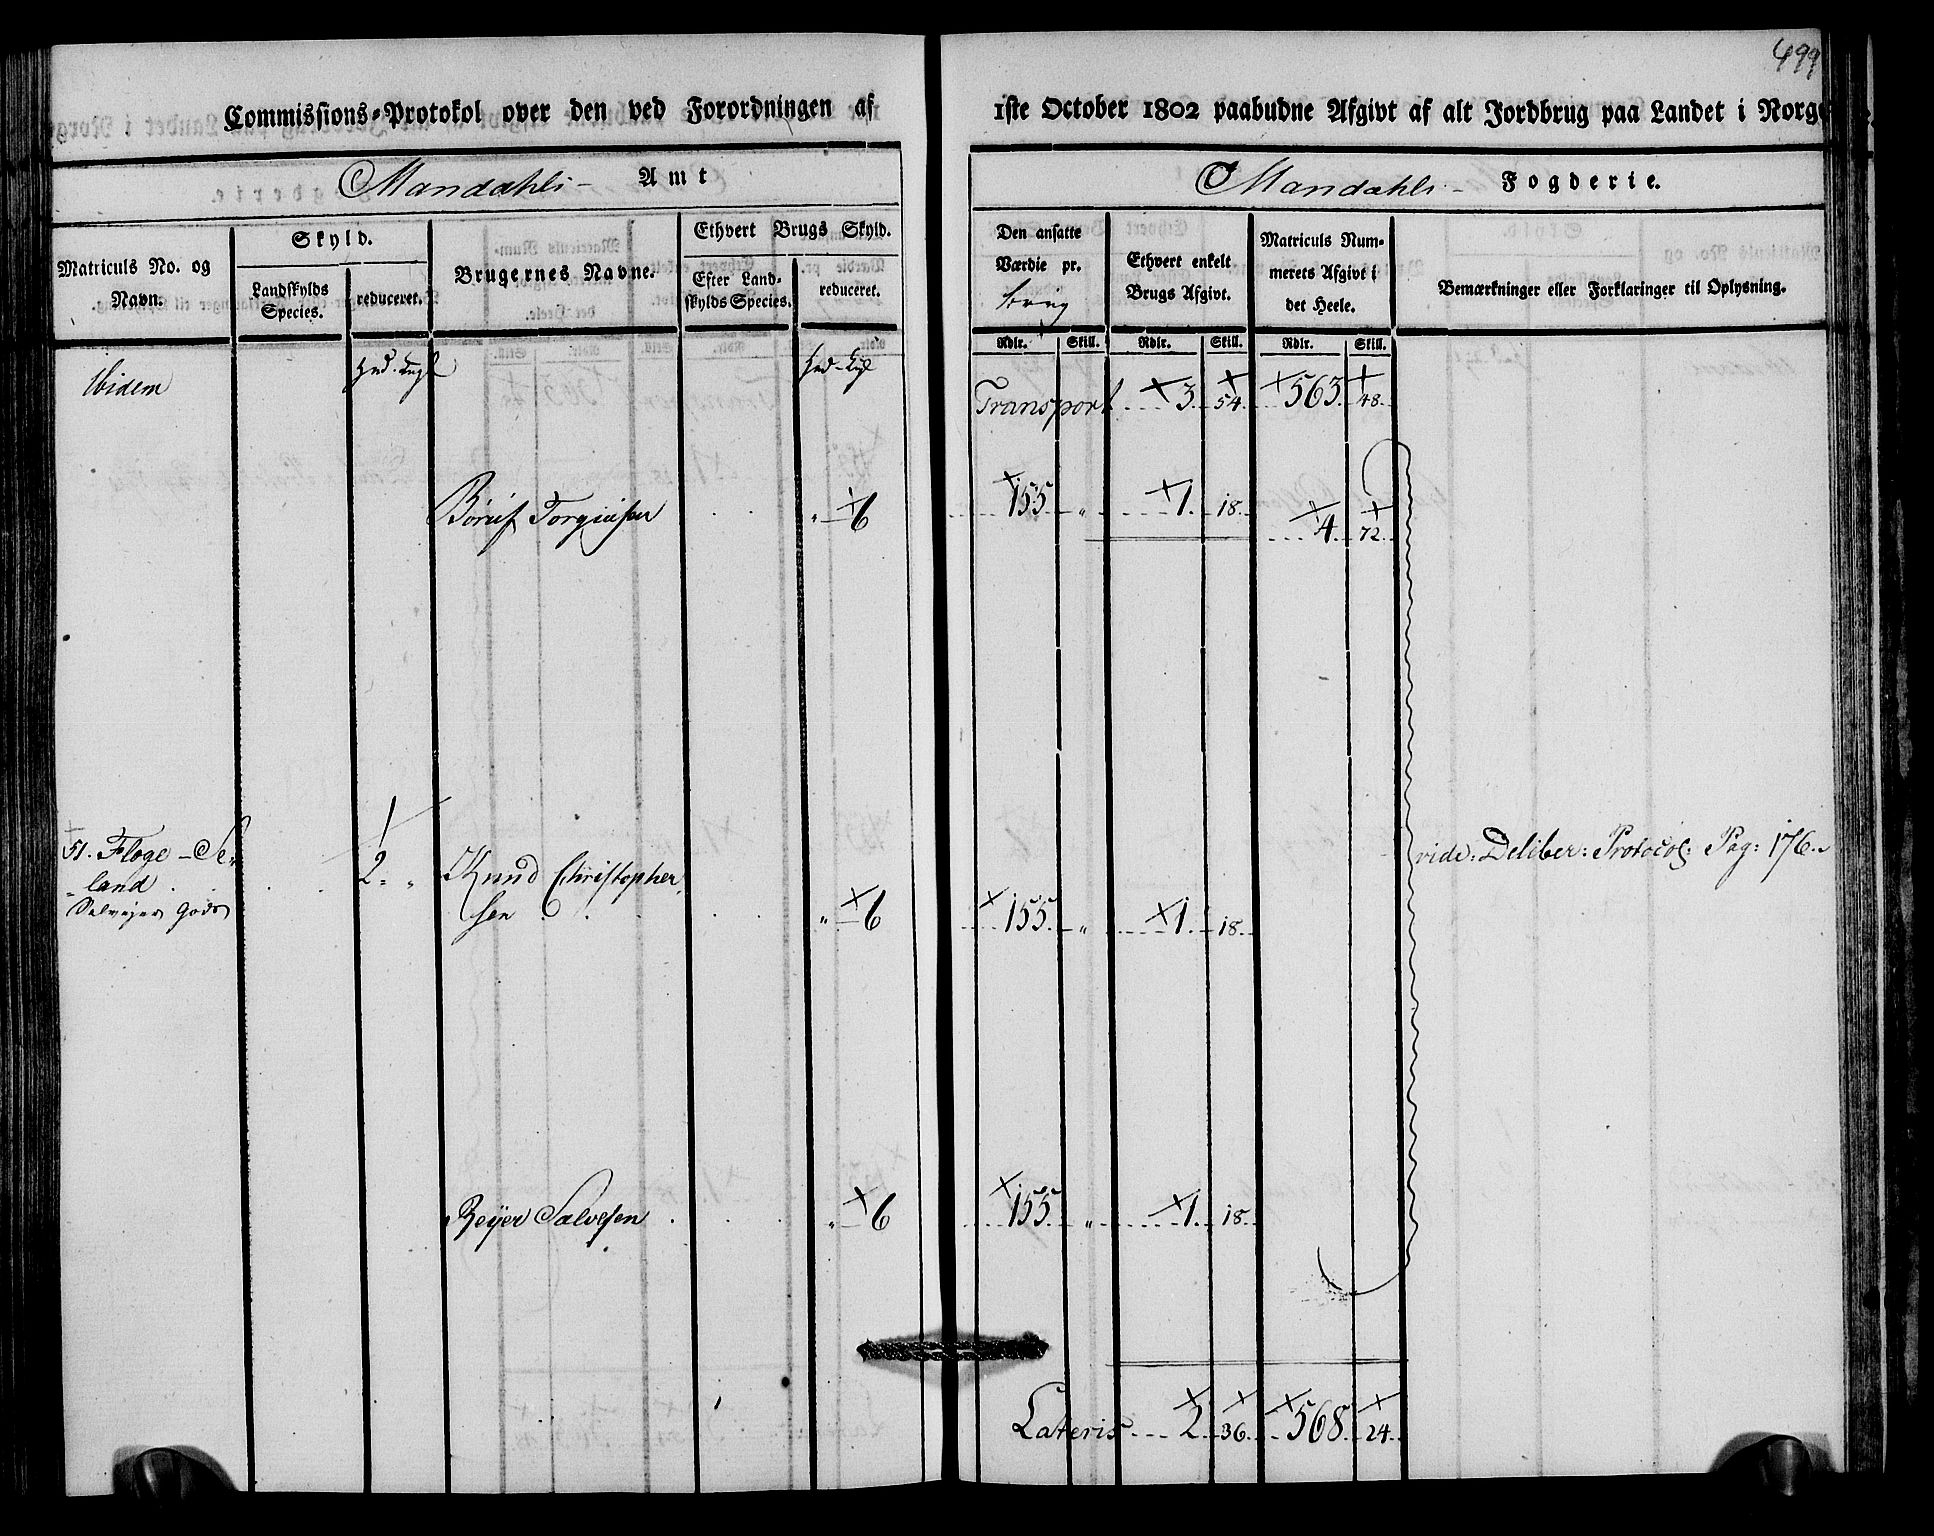 499
Commissions-Protokol over den ved Forordningen af 1ste October 1802 paabudne Afgivt af alt Jordbrug paa Landet i Norge
Mandahls- Amt
Mandahls- Fogderie.
Matriculs No. og Navn.
Skyld.
Landskylds Species.
reduceret.
Brugernes Navne.
Ethvert Brugs Skyld.
Efter Landskylds Species.
reduceret.
Den ansatte Værdie pr. brug
Ethvert enkelt Brugs Afgivt.
Matriculs Nummerets Afgivt i det Heele.
Bemærkninger eller Forklaringer til Oplysning.
Rdlr. Skill. Rdlr. Skill. Rdlr. Skill.
Ibidem
Transport 3. 54. 563. 48.
Torgiusen " 6 155 " 1. 18. 4. 72.
51. Floge-Se-
land 2. " Knud Christopher
Salvejer Gods sen " 6 155. " 1. 18.
vide: Deliber: Protocol: Pag: 176.
Reyer Salvesen " 6 155 " 1. 18.
Lateris 2. 36. 568. 24.